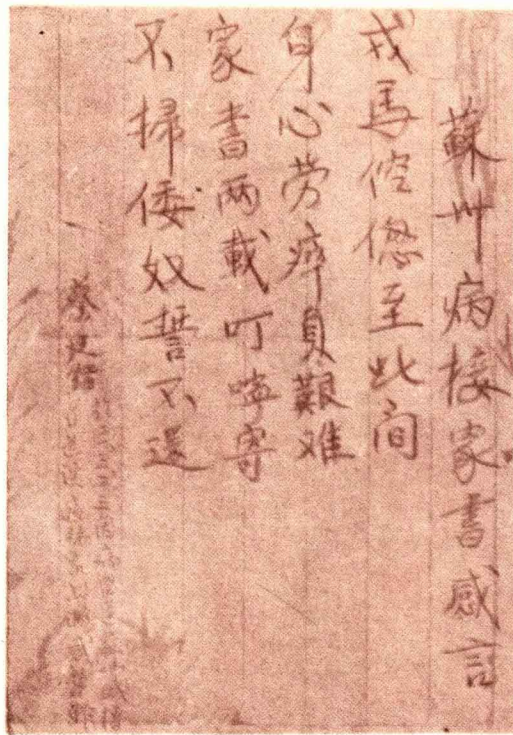 蘇州病接家書感言
戎馬倥偬至此间
身心劳瘁負艱难
家書两載叮嚀寄
不掃倭奴誓不還